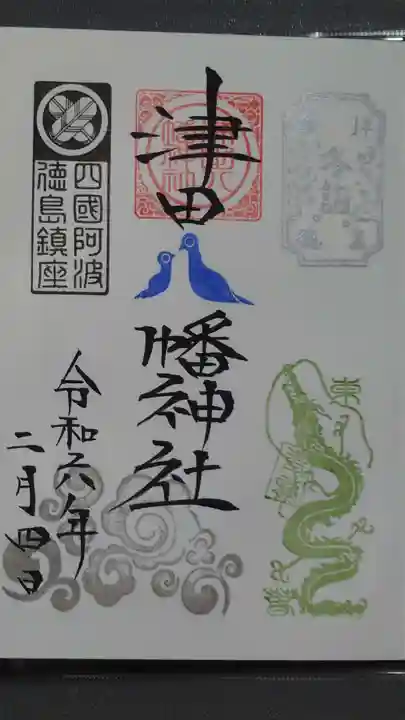 津田八幡神社
四國阿波
徳島鎮座
令和六年
二月四日
東